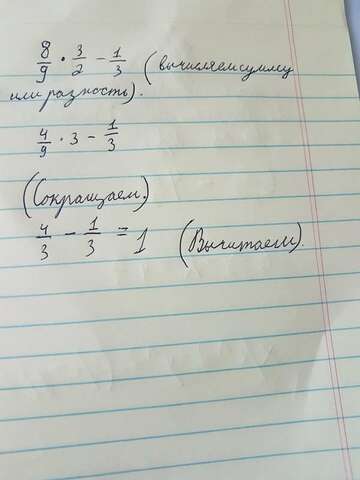 8/9 · 3/2 - 1/3 (вычисляем сумму
или разность).
4/9 · 3 - 1/3
(Сокращаем.)
4/3 - 1/3 = 1 (Вычитаем).